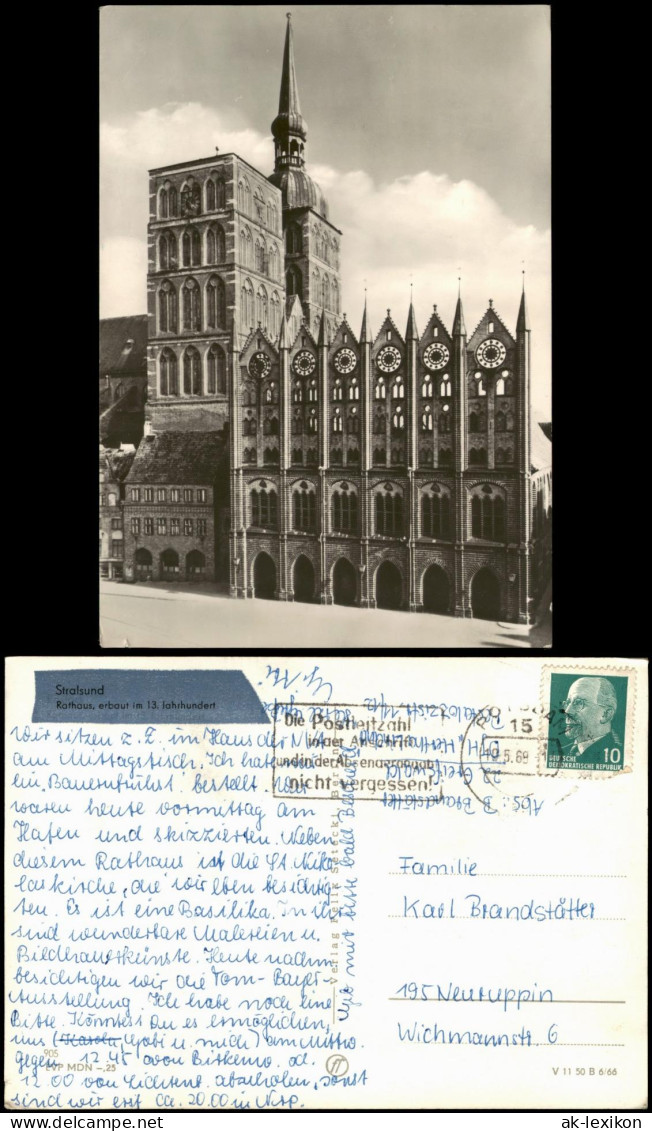 Stralsund
Rathaus, erbaut im 13. Jahrhundert
Wir sitzen z. Z. im Haus der
am Mittagstisch. Ich hab
ein "Bauernfrühst." bestellt. Wir
waren heute vormittag am
Hafen und skizzierten. Neben
diesem Rathaus ist die St. Niko
laikirche, die wir eben besichtig
ten. Es ist eine Basilika. In ihr
sind wunderbare Malereien u.
Bildhauerkünste. Heute nachm.
besichtigen wir die Tom-Beyer-
Ausstellung. Ich habe noch eine
Bitte. Könntest du es ermöglichen,
uns (Karola, Gabi u. mich) am Mittw.
gegen 12.45 von
12.00 von abzuholen, sonst
sind wir erst ca. 20.00 in Nrp.
Gebt mir bitte bald Bescheid
Die Postleitzahl
in der Anschrift
und in der Absenderangabe
nicht vergessen!
15
5.69
DEUTSCHE
DEMOKRATISCHE REPUBLIK
10
Abs.: B. Brandstätter
22 Greifswald
Familie
Karl Brandstätter
195 Neuruppin
Wichmannstr. 6
905
EVP MDN -,25
V 11 50 B 6/66
ak-lexikon